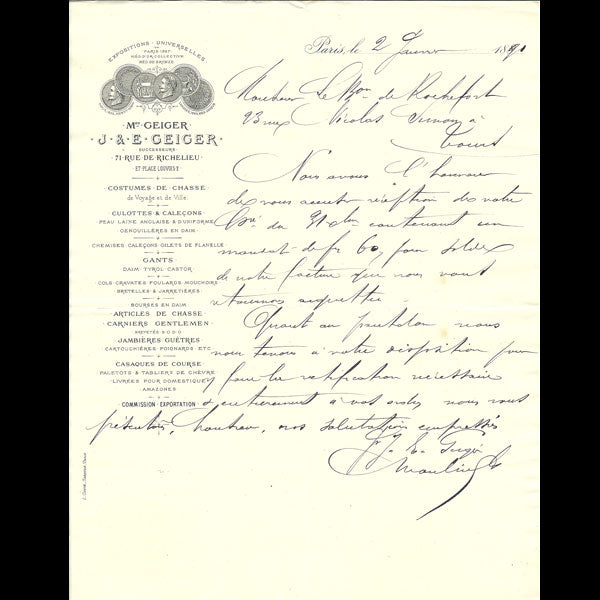 EXPOSITIONS UNIVERSELLES
PARIS 1867
Mon GEIGER
J. & E. GEIGER
SUCCESSEURS
71, RUE DE RICHELIEU
ET PLACE LOUVOIS 2
COSTUMES DE CHASSE
de Voyage et de Ville
CULOTTES & CALEÇONS
PEAU LAINE ANGLAISE & D'UNIFORME
GENOUILLÈRES EN DAIM
CHEMISES CALEÇONS GILETS DE FLANELLE
GANTS
DAIM TYROL CASTOR
COLS CRAVATES FOULARDS MOUCHOIRS
BRETELLES & JARRETIÈRES
BOURSES EN DAIM
ARTICLES DE CHASSE
CARNIERS GENTLEMEN
BREVETÉS S.G.D.G
JAMBIÈRES GUÊTRES
CARTOUCHIÈRES POIGNARDS ETC
CASAQUES DE COURSE
PALETOTS & TABLIERS DE CHÈVRE
LIVRÉES POUR DOMESTIQUES
AMAZONES
COMMISSION EXPORTATION
Paris, le 2 Janvier 1891
Monsieur Le Bon de Rochefort
93 rue Nicolas Simon à
Tours
Nous avons l'honneur
de vous accuser réception de votre
contenant un
mandat de fr 60, pour solde
de notre facture que nous vous
retournons acquittée.
Quant au pantalon nous
nous tenons à votre disposition pour
pour la rectification nécessaire
& entièrement à vos ordres nous vous
présentons, Monsieur, nos salutations empressées
J. E. Geiger